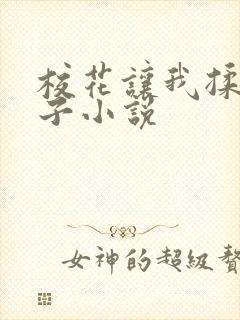 校花讓我揉
子小說
女神的超級贅